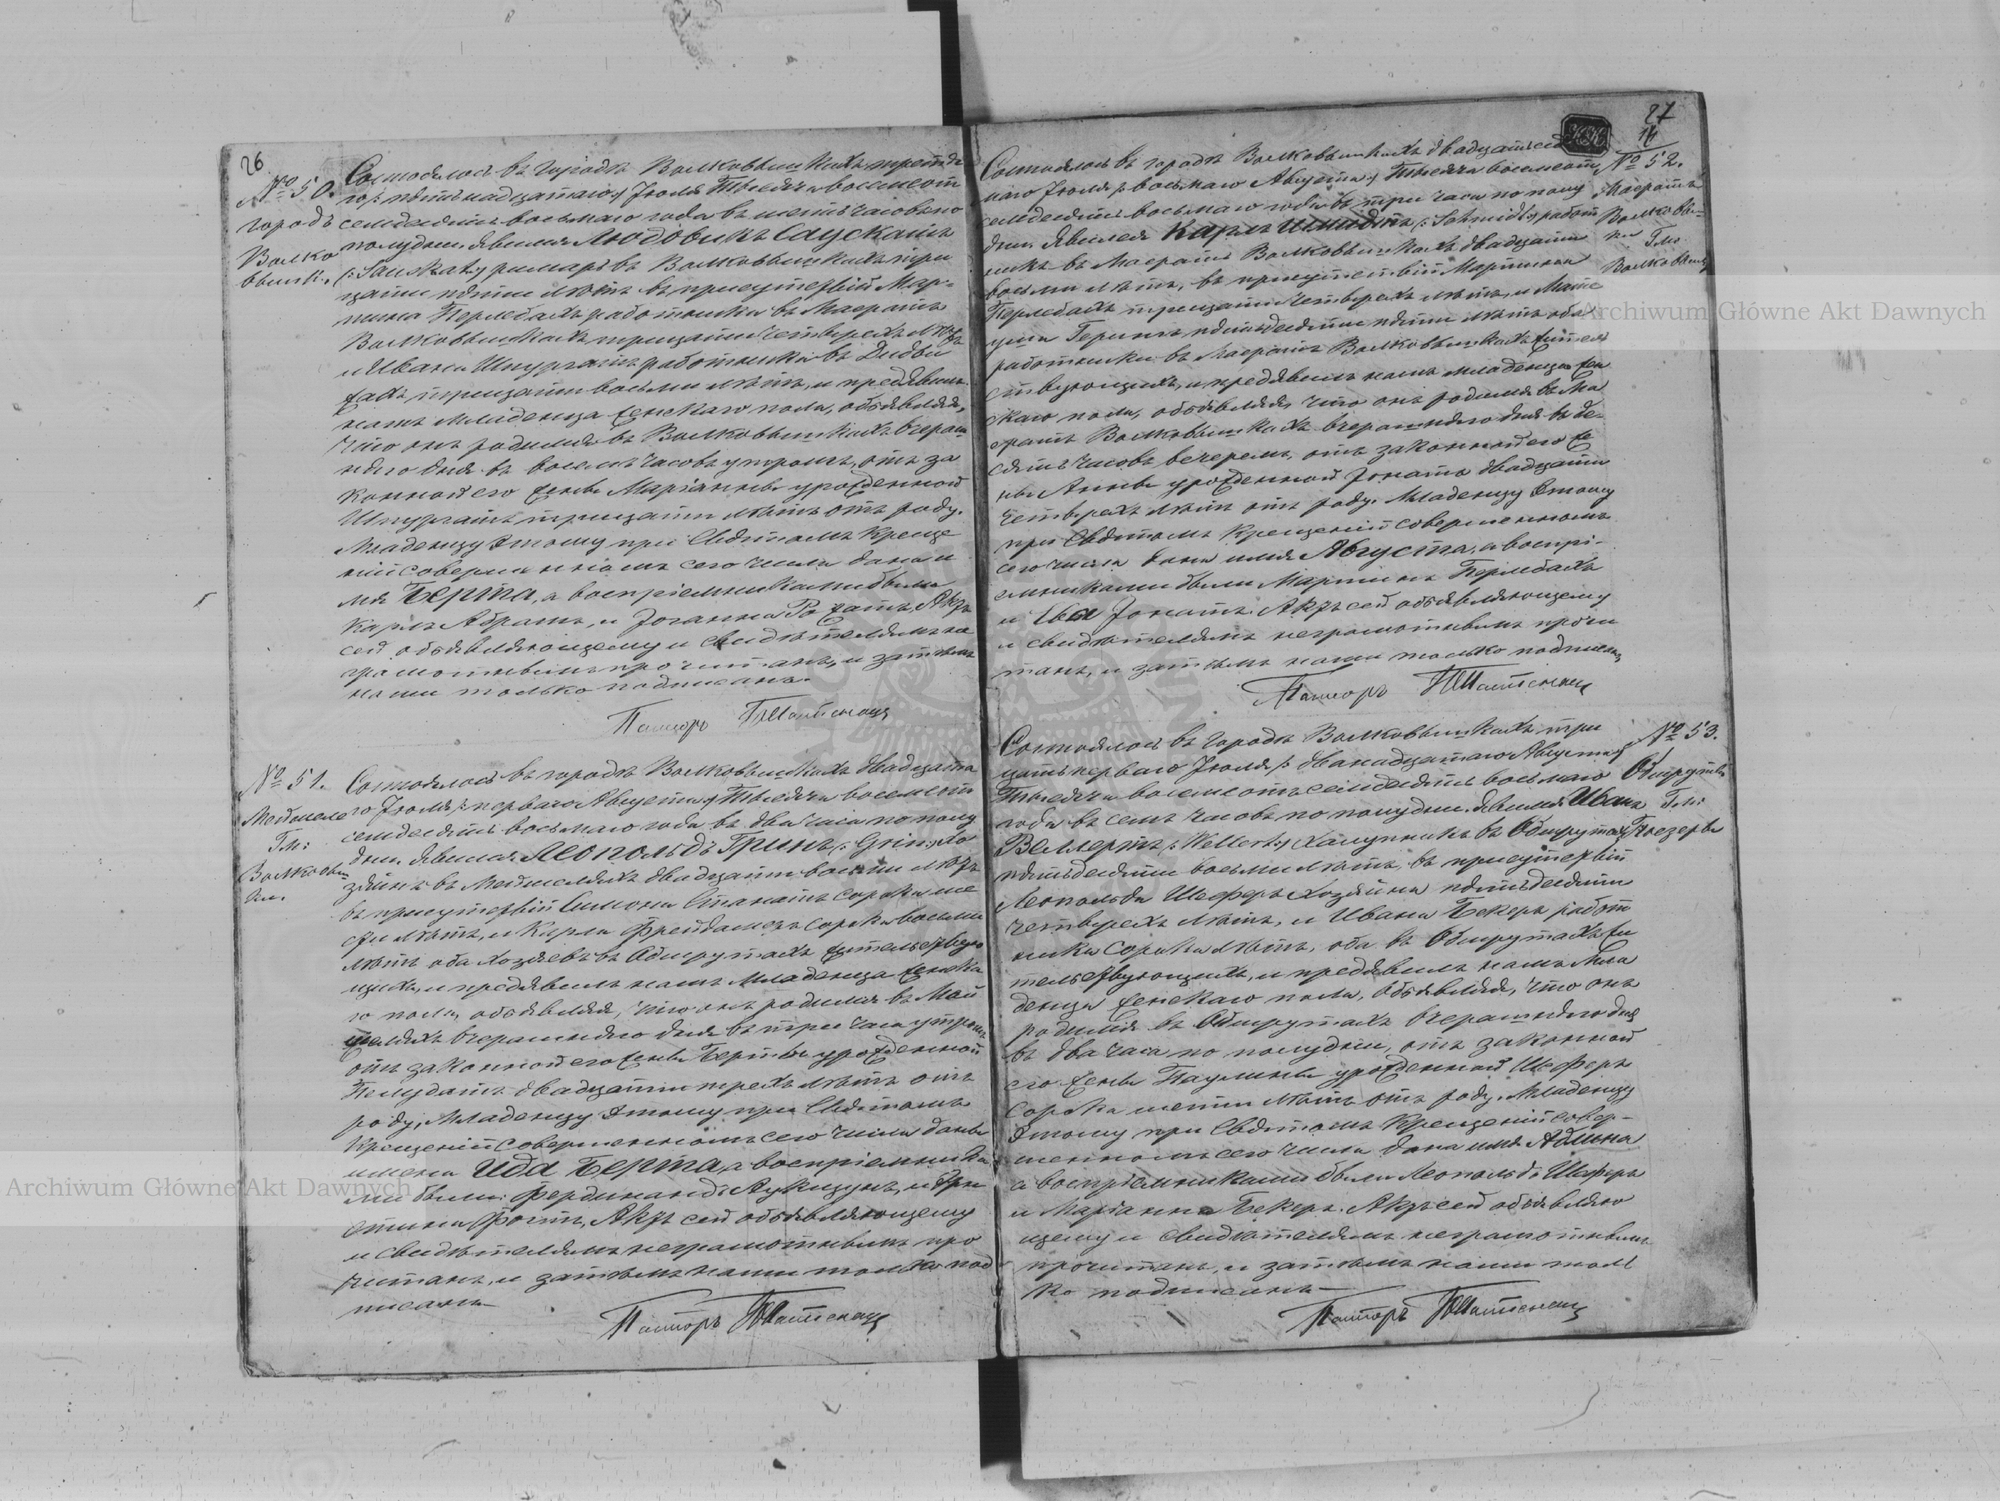 26.
№ 50.
городъ
Волко
вышки.
Состоялось въ городѣ Волковышкахъ третья
го /: пятьнадцатаго :/ Іюля Тысяча восемсотъ
семдесятъ восьмаго года въ шесть часовъ по
полудни. Явился Людовикъ Саускатъ
/: Sauskat :/ римаръ въ Волковышкахъ три
цати пяти лѣтъ въ присутствіи Мар-
тина Перлебахъ работника въ Маератѣ
Волковышкахъ трицати четырехъ лѣтъ
и Ивана Шпургатъ работника въ
трицати восьми лѣтъ, и предявилъ
намъ Младенца женскаго пола, объявляя,
что онъ родился въ Волковышкахъ вчераш
няго дня въ восемь часовъ утромъ, отъ за
конной его жены Маріанны урожденной
Шпургатъ трицати лѣтъ отъ роду.
Младенцу этому при Святомъ Креще
ніи совершенномъ сего числа дано и
мя Берта, а воспріемниками были
Карлъ Абрамъ, и Іоганна Актъ
сей объявляющему и свидѣтелямъ не
грамотнымъ прочитанъ, и затѣмъ
нами только подписанъ.
Пасторъ
№ 51.
Гм:
Волковыш
ки.
Состоялось въ городѣ Волковышкахъ двадцата
го Іюля /: перваго Августа :/ Тысяча восемсотъ
семдесятъ восьмаго года въ два часа по полу
дни. Явился Леопольдъ Гринъ /: Grin :/ хо
зяинъ въ двадцати восьми лѣтъ
въ присутствіи Симона сорока ше
сти лѣтъ, и Карла сорока восьми
лѣтъ оба хозяевъ въ Обшрутахъ жительствую
щихъ, и предявилъ намъ Младенца женска
го пола, объявляя, что онъ родился въ Мей
шеляхъ вчерашняго дня въ три часа утромъ
отъ законной его жены Берты урожденной
двадцати трехъ лѣтъ отъ
роду, Младенцу этому при Святомъ
Крещеніи совершенномъ сего числа даны
имена Ида Берта, а воспріемника
ми были: Фердинандъ и
Актъ сей объявляющему
и свидѣтелямъ неграмотнымъ про
читанъ, и затѣмъ нами только под
писанъ
Пасторъ
27
14
№ 52.
Маератъ
Волковы-
ки Гм:
Волковышки
Состоялось въ городѣ Волковышкахъ двадцать седь
маго Іюля /: восьмаго Августа :/ Тысяча восемсотъ
семдесятъ восьмаго года въ три часа по полу
дни. Явился Карлъ Шмидтъ /: Schmidt :/ работ
никъ въ Маератѣ Волковышкахъ двадцати
восьми лѣтъ, въ присутствіи Мартина
Перлебахъ трицати четырехъ лѣтъ, и Мате
уша Герингъ пятьдесяти пяти лѣтъ оба
работники въ Маератѣ Волковышкахъ жител
ствующихъ, и предявилъ намъ младенца жен
скаго пола, объявляя, что онъ родился въ Ма
ератѣ Волковышкахъ вчерашняго дня въ де-
сять часовъ вечеромъ, отъ законной его же
ны Анны урожденной Іонатъ двадцати
четырехъ лѣтъ отъ роду. Младенцу этому
при Святомъ Крещеніи совершенномъ
сего числа дано имя Августа, а воспрі-
емниками были Мартинъ Перлебахъ
и Ева Іонатъ. Актъ сей объявляющему
и свидѣтелямъ неграмотнымъ прочи
танъ, и затѣмъ нами только подписанъ
Пасторъ
№ 53.
Обшруты
Гм:
Состоялось въ городѣ Волковышкахъ три
цать перваго Іюля /: двѣнадцатаго Августа :/
Тысяча восемсотъ семдесятъ восьмаго
года въ семь часовъ по полудни. Явился Иванъ
Веллертъ /: Wellert :/ халупникъ въ Обшрутахъ
пятьдесяти восьми лѣтъ, въ присутствіи
Леопольда Шеферъ хозяина пятьдесяти
четырехъ лѣтъ, и Ивана Бекеръ работ
ника сорока лѣтъ, оба въ Обшрутахъ жи
тельствующихъ, и предявилъ намъ Мла
денца женскаго пола, объявляя, что онъ
родился въ Обшрутахъ вчерашняго дня
въ два часа по полудни, отъ законной
его жены Паулины урожденной Шеферъ
сорока шести лѣтъ отъ роду. Младенцу
этому при Святомъ Крещеніи совер-
шенномъ сего числа дано имя
а воспріемниками были Леопольдъ Шеферъ
и Маріанна Бекеръ. Актъ сей объявляю
щему и свидѣтелямъ неграмотнымъ
прочитанъ, и затѣмъ нами толь
ко подписанъ
Пасторъ
Archiwum Główne Akt Dawnych
Archiwum Główne Akt Dawnych